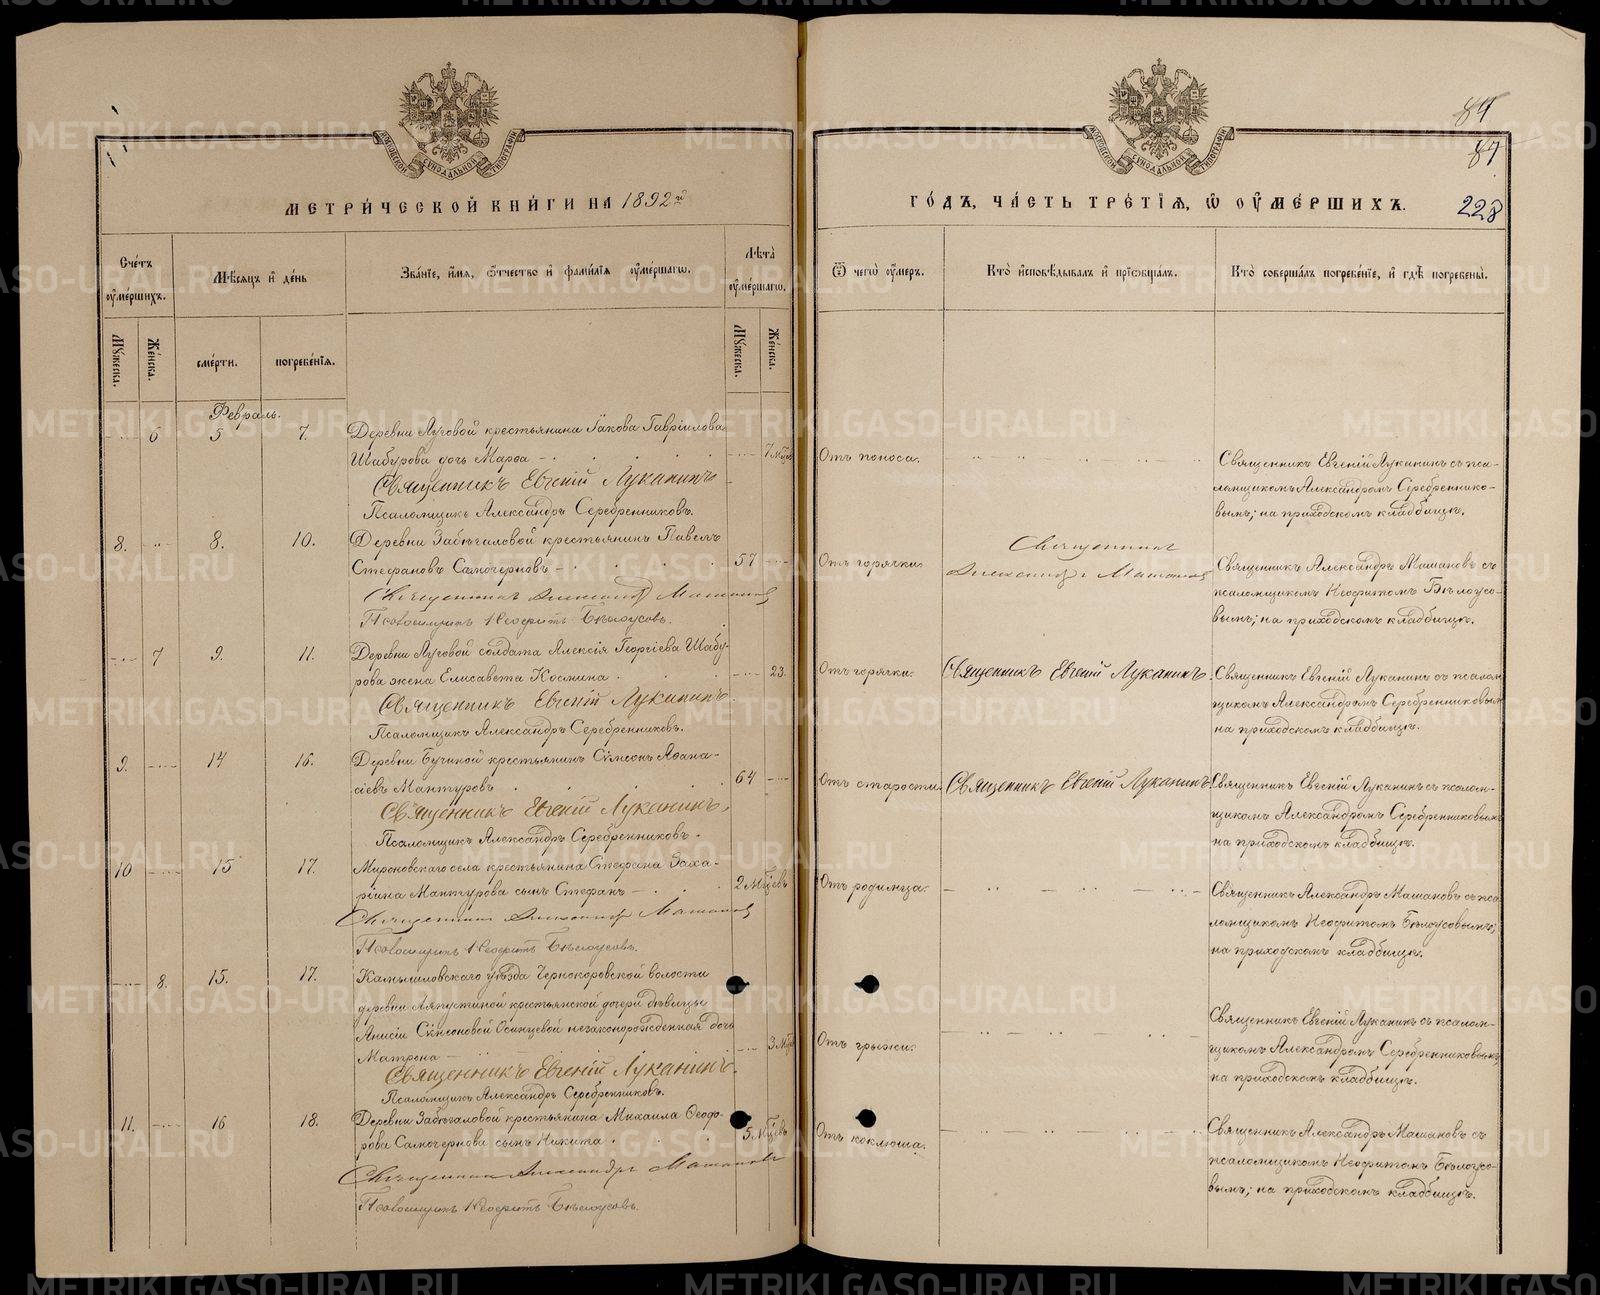 МЕТРИ́ЧЕСКОЙ КНИ́ГИ НА 1892й
ГО́ДЪ, ЧА́СТЬ ТРЕ́ТІѦ, Ѿ ОУ҆МЕ́РШИХЪ.
84
87
228
Сче́тъ оу҆ме́ршихъ.
Мѣ́сѧцъ и҆ де́нь
Зва́нїе, и҆́мѧ, ѻ҆́тчество и҆ фами́лїѧ оу҆ме́ршагѡ.
Лѣ́та оу҆ме́ршагѡ.
Ѿ чегѡ̀ оу҆́меръ.
Кто̀ и҆сповѣ́дывалъ и҆ прїѡбща́лъ.
Кто̀ соверша́лъ погребе́нїе, и҆ гдѣ̀ погребены̀.
Мꙋ́жеска.
Же́нска.
сме́рти.
погребе́нїѧ.
Мꙋ́жеска.
Же́нска.
Февраль.
6 5 7. Деревни Луговой крестьянина Іакова Гавріилова
Шабурова дочь Марѳа 7 мѣс. Отъ поноса.
Священникъ Евгеній Луканинъ
Псаломщикъ Александръ Серебренниковъ.
Священникъ Евгеній Луканинъ съ пса-
ломщикомъ Александромъ Серебреннико-
вымъ; на приходскомъ кладбищѣ.
8. 8. 10. Деревни Забѣгаловой крестьянинъ Павелъ
Стефановъ Самочерновъ 57 Отъ горячки.
Священникъ Александръ Машановъ
Псаломщикъ Неофитъ Бѣлоусовъ.
Священникъ
Александръ Машановъ
Священникъ Александръ Машановъ съ
псаломщикомъ Неофитомъ Бѣлоусо-
вымъ; на приходскомъ кладбищѣ.
7 9. 11. Деревни Луговой солдата Алексія Георгіева Шабу-
рова жена Елисавета Космина 23. Отъ горячки.
Священникъ Евгеній Луканинъ.
Псаломщикъ Александръ Серебренниковъ.
Священникъ Евгеній Луканинъ.
Священникъ Евгеній Луканинъ съ псалом-
щикомъ Александромъ Серебренниковымъ
на приходскомъ кладбищѣ.
9. 14 16. Деревни Бучиной крестьянинъ Сѵмеонъ Аѳана-
сіевъ Мантуровъ 64 Отъ старости.
Священникъ Евгеній Луканинъ.
Псаломщикъ Александръ Серебренниковъ.
Священникъ Евгеній Луканинъ
Священникъ Евгеній Луканинъ съ псалом-
щикомъ Александромъ Серебренниковымъ
на приходскомъ кладбищѣ.
10 15 17. Мироновскаго села крестьянина Стефана Заха-
ріина Мантурова сынъ Стефанъ 2 мѣсцевъ Отъ родимца.
Священникъ Александръ Машановъ
Псаломщикъ Неофитъ Бѣлоусовъ.
Священникъ Александръ Машановъ съ пса-
ломщикомъ Неофитомъ Бѣлоусовымъ;
на приходскомъ кладбищѣ.
8. 15. 17. Камышловскаго уѣзда Чернокоровской волости
деревни Ляпустиной крестьянской дочери дѣвицы
Анисіи Сѵмеоновой Осинцевой незаконорожденная дочь
Матрона 3 мѣс. Отъ грыжи.
Священникъ Евгеній Луканинъ.
Псаломщикъ Александръ Серебренниковъ.
Священникъ Евгеній Луканинъ съ псалом-
щикомъ Александромъ Серебренниковымъ,
на приходскомъ кладбищѣ.
11. 16 18. Деревни Забѣгаловой крестьянина Михаила Ѳеодо-
рова Самочернова сынъ Никита. 5 мѣсцевъ Отъ коклюша.
Священникъ Александръ Машановъ
Псаломщикъ Неофитъ Бѣлоусовъ.
Священникъ Александръ Машановъ съ
псаломщикомъ Неофитомъ Бѣлоусо-
вымъ; на приходскомъ кладбищѣ.
METRIKI.GASO-URAL.RU